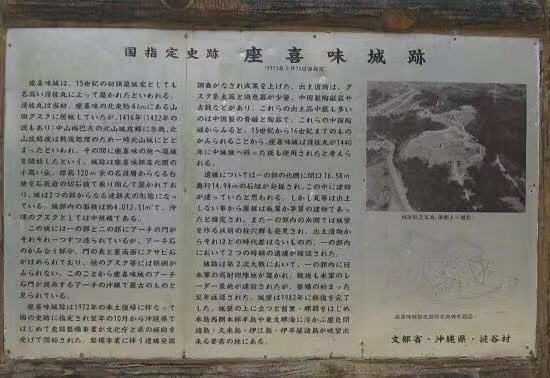 国指定史跡 座喜味城跡
(1972年5月15日指定)
座喜味城は、15世紀の初頭築城家としても
名高い護佐丸によって築かれたといわれる。
護佐丸は当初、座喜味の北東約4kmにある山
田グスクに居城していたが、1416年(1422年の
説もあり)中山尚巴志の北山城攻略に参戦、北
山攻略後は戦後処理のため一時北山城にとど
まったといわれ、その間に座喜味の地へ築城
を開始したという。城跡は座喜味部落北側の
小高い丘、標高120m余の名護層からなる台
地を石灰岩の切石積で取り囲んで築かれてお
り、城は2つの郭からなる連郭式の形態になっ
ている。城郭内の面積は約4,012.51m²で、沖
縄のグスクとしては中規模である。
この城には一の郭と二の郭にアーチの門が
それぞれ一つずつ造られているが、アーチ石
のかみ合う部分、門の表と裏両面にクサビ石
がはめられており、他のグスク等には類例が
みられない。このことから座喜味城のアーチ
石門が現存するアーチの沖縄で最古のものと
見られている。
座喜味城跡は1972年の本土復帰に伴なって
国の史跡に指定され翌年の10月から沖縄県で
はじめて史跡整備事業が文化庁と県の補助を
受けて開始された。整備事業に伴う遺構発掘
調査がなされ成果を上げた。出土遺物は、グ
スク系土器と須恵器が少量、中国製陶磁器や
古銭などがあり、これらの出土品中最も多い
のは中国製の青磁と陶器で、これらの中国陶
磁からみると、15世紀から16世紀までのもの
がみられることから、座喜味城は護佐丸が1440
年に中城城へ移った後も使用されたと考えら
れる。
遺構については一の郭の北側に間口16.58m
奥行14.94mの石組が発掘され、この中に建物
が建っていたと思われる。しかし瓦等は出土
しない事から屋根は板葺か茅葺の建物であっ
たと推定され、また一の郭内の南側では城壁
を作る以前の柱穴群も発見され、出土遺物か
らそれほどの時代差はないものの、一の郭内
において2つの時期の遺構が確認された。
城跡は第2次大戦において、一の郭内に日
本軍の高射砲陣地が築かれ、戦後も米軍のレ
ーダー基地が建設されたが、整備の始まった
翌年返還された。城壁は1982年に修復を完了
した。城壁の上に立つと首里・那覇をはじめ
本島西側本部半島や東支那海に浮かぶ慶良間
諸島・久米島・伊江島・伊平屋諸島が眺望出
来る要害の地にある。
文部省・沖縄県・読谷村